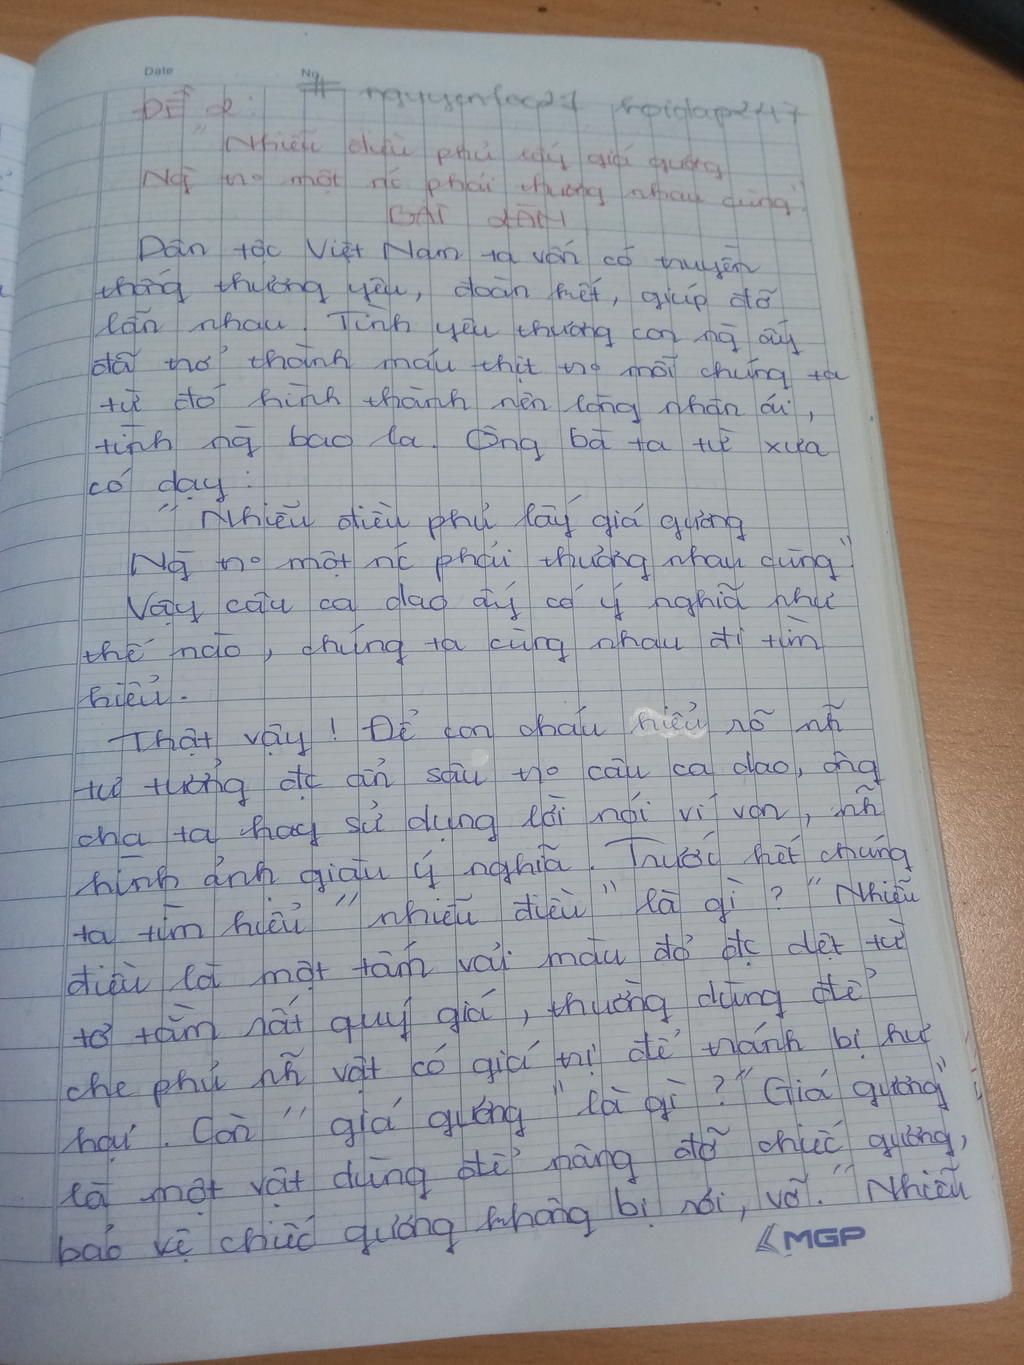 Date No
# nguyenfoc27 hoidap247
Đề 2:
"Nhiễu điều phủ lấy giá gương
Ng̃ tr० một nc phải thương nhau cùng"
BÀI LÀM
Dân tộc Việt Nam ta vốn có truyền
thống thương yêu, đoàn kết, giúp đỡ
lẫn nhau. Tình yêu thương con ng̃ ấy
đã trở thành máu thịt tr० mỗi chúng ta
từ đó hình thành nên lòng nhân ái,
tình ng̃ bao la. Ông bà ta từ xưa
có dạy:
"Nhiễu điều phủ lấy giá gương
Ng̃ tr० một nc phải thương nhau cùng"
Vậy câu ca dao ấy có ý nghĩa như
thế nào, chúng ta cùng nhau đi tìm
hiểu.
Thật vậy! Để con cháu hiểu rõ nh̃
tư tưởng đc ẩn sâu tr० câu ca dao, ông
cha ta hay sử dụng lời nói ví von, nh̃
hình ảnh giàu ý nghĩa. Trước hết chúng
ta tìm hiểu "nhiễu điều" là gì? "Nhiễu
điều là một tấm vải màu đỏ đc dệt từ
tơ tằm rất quý giá, thường dùng để
che phủ nh̃ vật có giá trị để tránh bị hư
hại. Còn "giá gương" là gì? "Giá gương"
là một vật dùng để nâng đỡ chiếc gương,
bảo vệ chiếc gương không bị rơi, vỡ. "Nhiễu
MGP